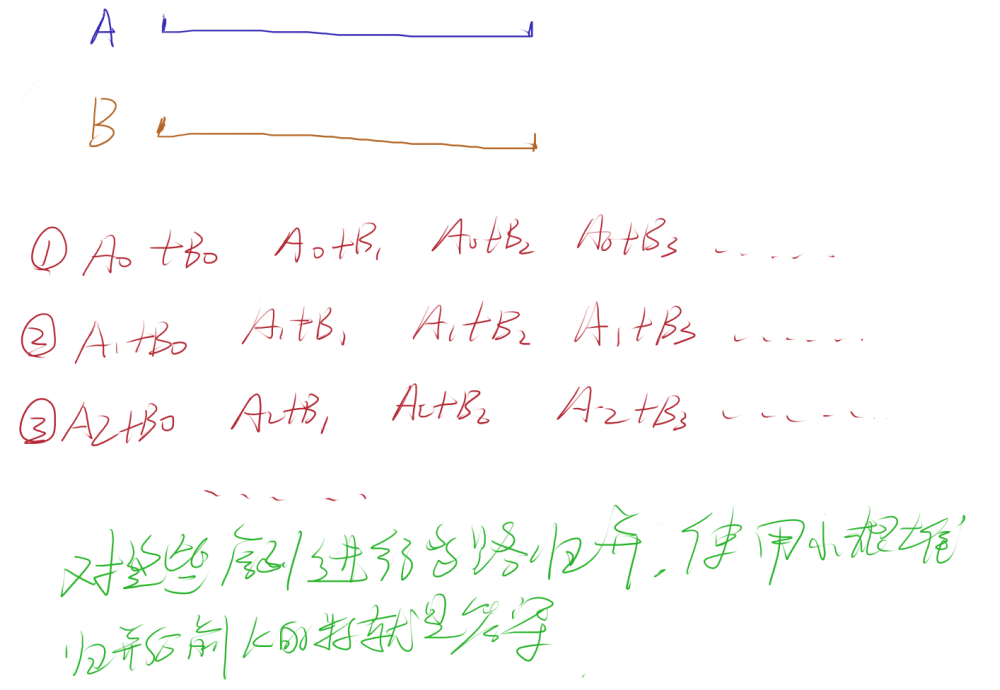 A
B
① A0+B0 A0+B1 A0+B2 A0+B3 ......
② A1+B0 A1+B1 A1+B2 A1+B3 ......
③ A2+B0 A2+B1 A2+B2 A2+B3 ......
......
对这些序列进行多路归并,使用小根堆
归并后前k的数就是答案